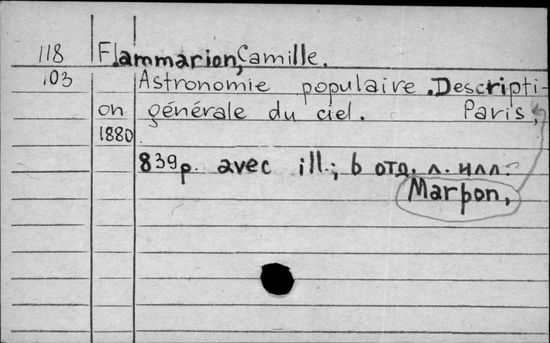 118 Flammarion, Camille.
103 Astronomie populaire. Descripti-
on générale du ciel. Paris,
1880
839p. avec ill.; 6 отд. л. илл.
Marpon,